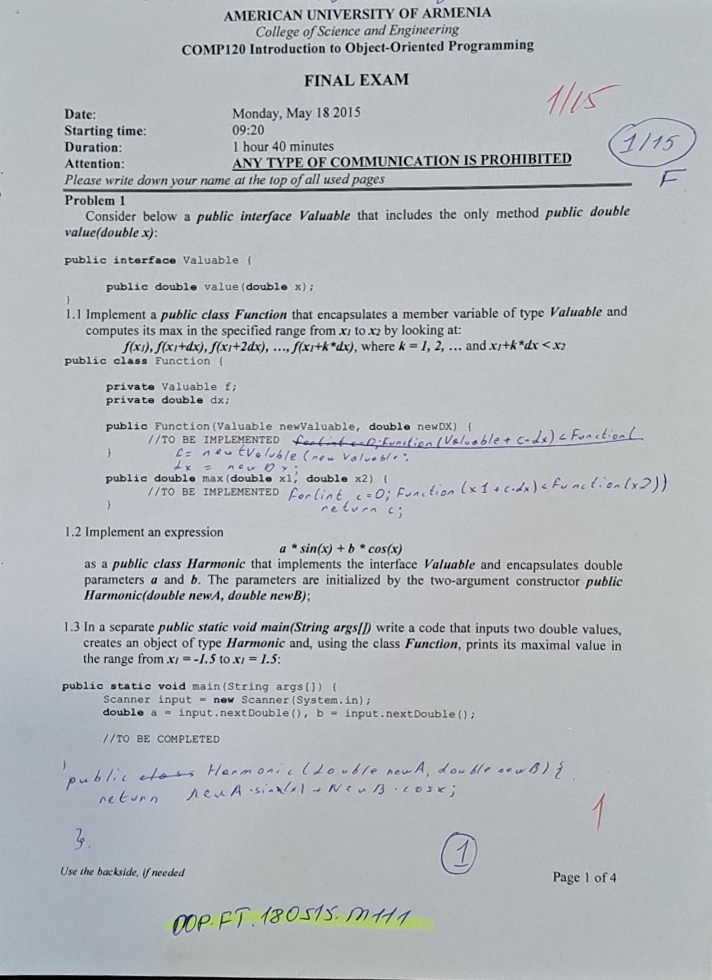 AMERICAN UNIVERSITY OF ARMENIA
College of Science and Engineering
COMP120 Introduction to Object-Oriented Programming
FINAL EXAM
1/15
Date: Monday, May 18 2015
Starting time: 09:20
Duration: 1 hour 40 minutes
1/15
Attention: ANY TYPE OF COMMUNICATION IS PROHIBITED
F
Please write down your name at the top of all used pages
Problem 1
Consider below a public interface Valuable that includes the only method public double
value(double x):
public interface Valuable {
public double value(double x);
}
1.1 Implement a public class Function that encapsulates a member variable of type Valuable and
computes its max in the specified range from x1 to x2 by looking at:
f(x1), f(x1+dx), f(x1+2dx), …, f(x1+k*dx), where k = 1, 2, … and x1+k*dx < x2
public class Function {
private Valuable f;
private double dx;
public Function(Valuable newValuable, double newDX) {
//TO BE IMPLEMENTED for(int c=0; Function(Valuable + c·dx) < Function(
} f = new (new Valuable;
dx = new Dx;
public double max(double x1, double x2) {
//TO BE IMPLEMENTED for(int c=0; Function(x1+c·dx) < Function(x2))
} return c;
1.2 Implement an expression
a * sin(x) + b * cos(x)
as a public class Harmonic that implements the interface Valuable and encapsulates double
parameters a and b. The parameters are initialized by the two-argument constructor public
Harmonic(double newA, double newB);
1.3 In a separate public static void main(String args[]) write a code that inputs two double values,
creates an object of type Harmonic and, using the class Function, prints its maximal value in
the range from x1 = -1.5 to x1 = 1.5:
public static void main(String args[]) {
Scanner input = new Scanner(System.in);
double a = input.nextDouble(), b = input.nextDouble();
//TO BE COMPLETED
}
public class Harmonic (double newA, double newB) {
return newA·sin(x) + NewB·cosx;
1
}.
1
Use the backside, if needed
Page 1 of 4
OOP.FT.180515.M111